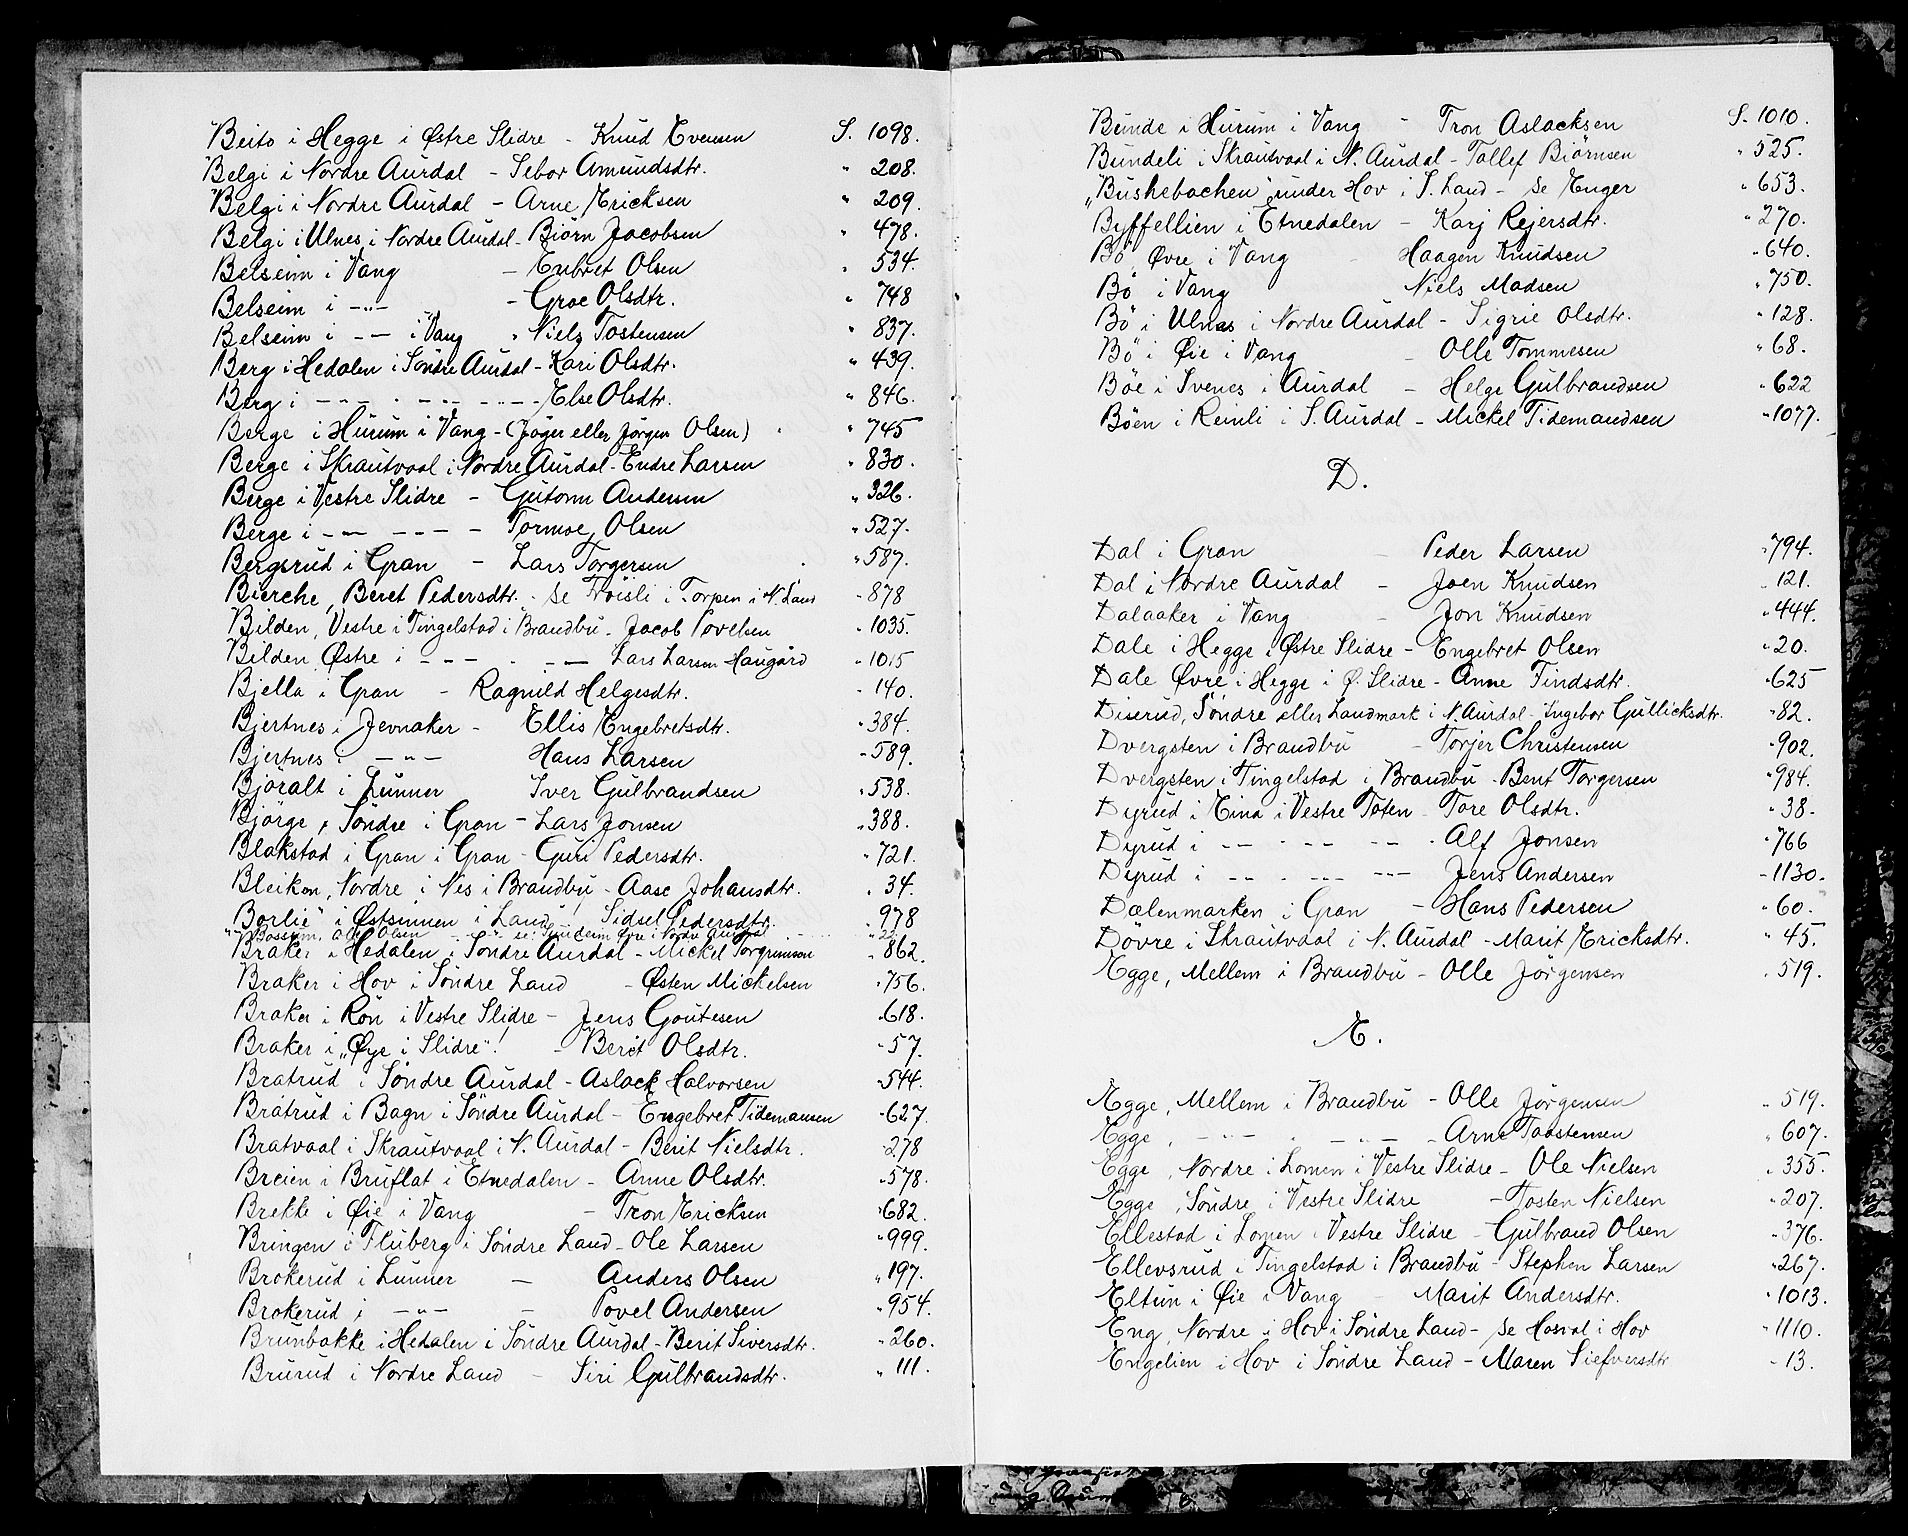 Beito i Hegge i Østre Slidre - Knud Evensen S. 1098.
Belgi i Nordre Aurdal - Sebor Amundsdtr. " 208.
Belgi i Nordre Aurdal - Arne Ericksen " 209.
Belgi i Ulnes i Nordre Aurdal - Biørn Jacobsen " 478.
Belseim i Vang - Enbret Olsen " 534.
Belseim i -"- - Groe Olsdtr. " 748
Belseim i -- i Vang " Niels Tostensen " 837.
Berg i Hedalen i Søndre Aurdal - Kari Olsdtr. " 439.
Berg i -"- - -"- -"- Else Olsdtr. " 846.
Berge i Hurum i Vang - (Jøger eller Jørgen Olsen) " 745
Berge i Skrautvaal i Nordre Aurdal - Endre Larsen " 830.
Berge i Vestre Slidre - Gutorm Andersen " 326.
Berge i -"- -"- - Tormoe Olsen " 527.
Bergsrud i Gran - Lars Torgersen " 587.
Bierche, Beret Pedersdtr. - se Frøisli i Torpen i N. Land - 878
Bilden, Vestre i Tingelstad i Brandbu - Jacob Povelsen " 1035.
Bilden Østre i -"- - -"- Lars Larsen Haugård " 1015
Bjella i Gran - Ragnild Helgesdtr. " 140.
Bjertnes i Jevnaker - Ellis Engebretsdtr. " 384.
Bjertnes i -"- Hans Larsen - 589.
Björalt i Lunner Iver Gulbrandsen " 538.
Bjørge, Søndre i Gran - Lars Jonsen " 388.
Blakstad i Gran i Gran - Guri Pedersdtr. " 721.
Bleiken, Nordre i Nes i Brandbu - Aase Johansdtr. " 34.
"Borlie" i Østsinnen i Land! Sidsel Pedersdtr. " 978
Braker i Hedalen i Søndre Aurdal - Mickel Torgrimsen " 862.
Braker i Hov i Søndre Land - Østen Mickelsen " 756.
Braker i Røn i Vestre Slidre - Jens Goutesen " 618.
Braker i "Øye i Slidre"! - Berit Olsdtr. " 57.
Bratrud i Søndre Aurdal - Aslack Halvorsen " 544.
Bratrud i Bagn i Søndre Aurdal - Engebret Tidemansen " 627.
Bratvaal i Skrautvaal i N. Aurdal - Berit Nielsdtr. " 278
Breien i Bruflat i Etnedalen - Anne Olsdtr. " 578.
Brekke i Øie i Vang - Tron Ericksen " 682.
Bringen i Fluberg i Søndre Land - Ole Larsen " 999.
Brokerud i Lunner - Anders Olsen " 197.
Brokerud i -"- - Povel Andersen " 954.
Brunbakke i Hedalen i Søndre Aurdal - Berit Siversdtr. " 260.
Brurud i Nordre Land - Siri Gulbrandsdtr. " 111.
Bunde i Hurum i Vang - Tron Aslacksen S. 1010.
Bundeli i Skrautvaal i N. Aurdal - Tollef Biørnsen " 525.
"Bushebachen" under Hov i S. Land - se Enger " 653.
Byffellien i Etnedalen - Karj Rejersdtr. " 270.
Bø Øvre i Vang - Haagen Knudsen " 640.
Bø i Vang Niels Madsen " 750.
Bø i Ulnes i Nordre Aurdal - Sigrie Olsdtr. " 128.
Bø i Øie i Vang - Olle Tommesen " 68.
Bøe i Svenes i Aurdal - Helge Gulbrandsen " 622
Bøen i Reinli i S. Aurdal - Mickel Tidemandsen " 1077.
D.
Dal i Gran - Peder Larsen " 794.
Dal i Nordre Aurdal - Joen Knudsen " 121.
Dalaaker i Vang - Jon Knudsen " 444.
Dale i Hegge i Østre Slidre - Engebret Olsen " 20.
Dale Øvre i Hegge i Ø. Slidre - Anne Findsdtr. " 625
Diserud, Søndre eller Landmark i N. Aurdal - Ingebor Gullicksdtr. " 82.
Dvergsten i Brandbu - Torjer Christensen " 902.
Dvergsten i Tingelstad i Brandbu - Bent Torgersen " 984.
Dyrud i Eina i Vestre Toten - Tore Olsdtr. " 38.
Dyrud i -- - -- -- - Alf Jonsen " 766
Dyrud i -- - -- --- Jens Andersen - 1130.
Dælenmarken i Gran - Hans Pedersen " 60.
Døvre i Skrautvaal i N. Aurdal - Marit Ericksdtr. " 45.
Egge, Mellem i Brandbu - Olle Jørgensen " 519.
E.
Egge, Mellem i Brandbu - Olle Jørgensen " 519.
Egge, -"- " -"- - Arne Taastensen " 607.
Egge, Nordre i Lomen i Vestre Slidre - Ole Nielsen " 355.
Egge, Søndre i Vestre Slidre - Tosten Nielsen " 207.
Ellestad i Lomen i Vestre Slidre - Gulbrand Olsen " 376.
Ellevsrud i Tingelstad i Brandbu - Stephen Larsen " 267.
Eltun i Øie i Vang - Marit Andersdtr. " 1013.
Eng Nordre i Hov i Søndre Land - se Hasval i Hov " 1110.
Engelien i Hov i Søndre Land - Maren Siefversdtr - 13.